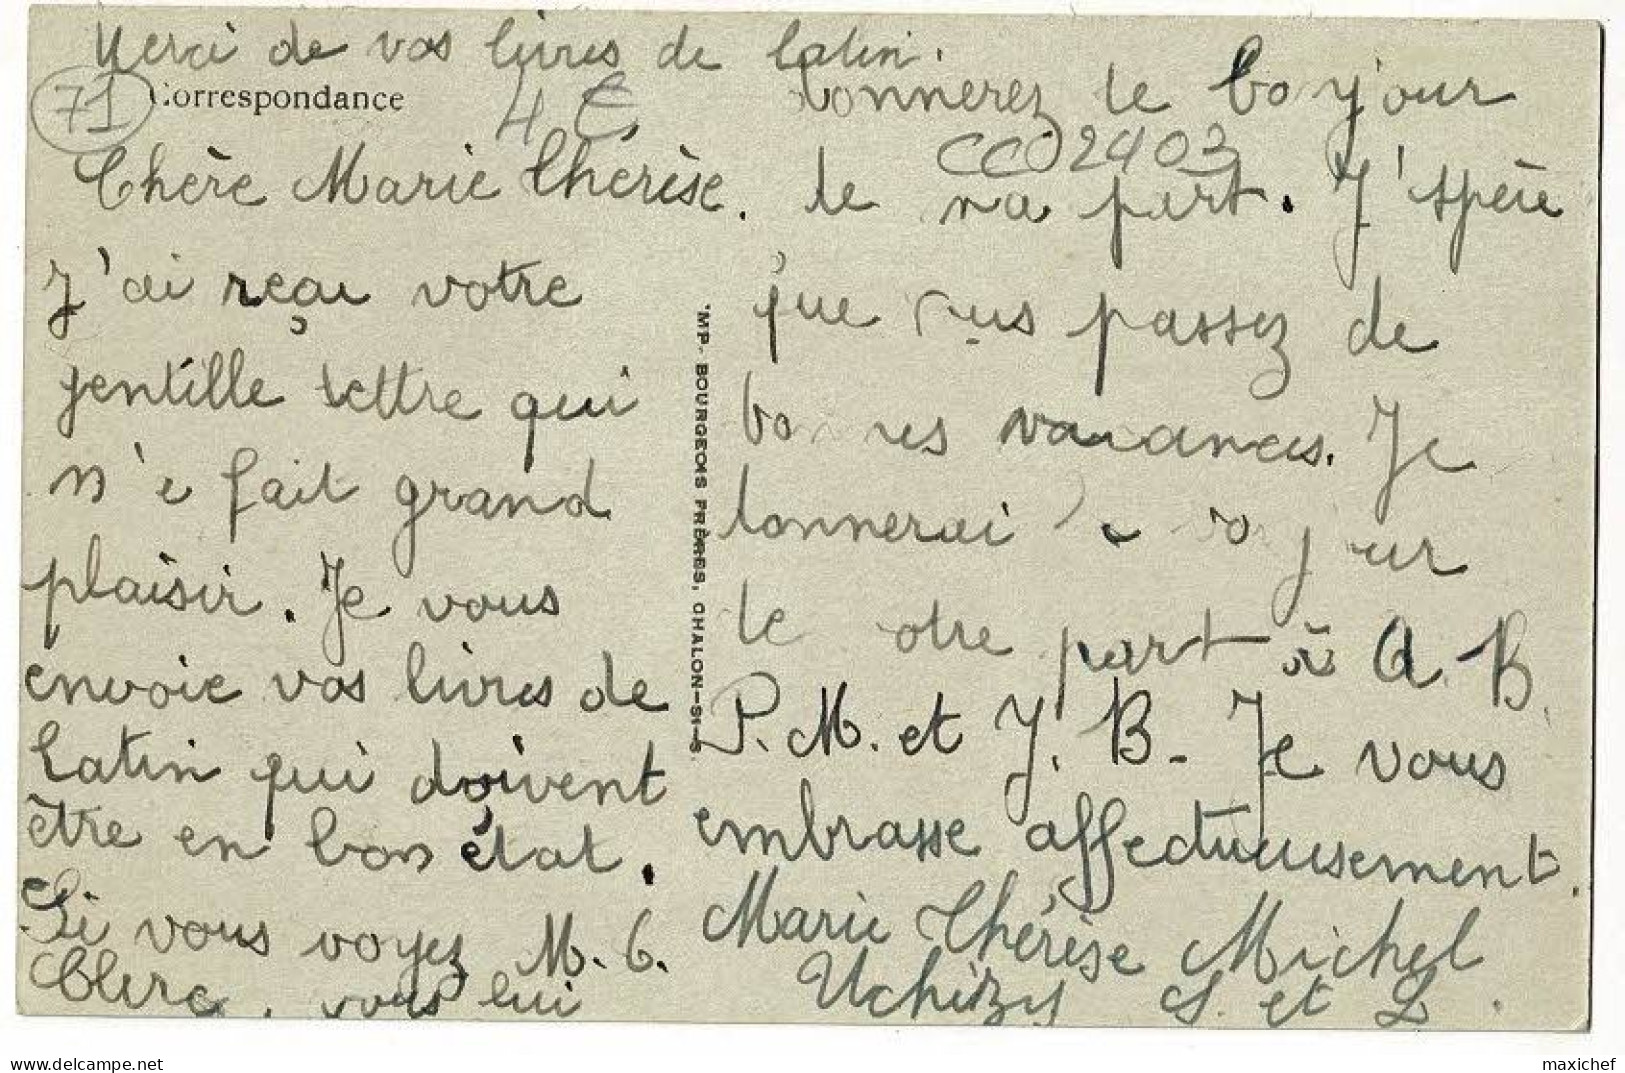 Merci de vos livres de latin.
71
Correspondance
4 €
Chère Marie Thérèse.
J'ai reçu votre
gentille lettre qui
m'a fait grand
plaisir. Je vous
envoie vos livres de
Latin qui doivent
être en bon état.
Si vous voyez M. C.
Clerc, vous lui
'MP. BOURGEOIS FRÈRES, CHALON-S-S.
donnerez le bonjour
CCO2403
de ma part. J'spère
que vous passez de
bonnes vacances. Je
donnerai le bonjour
de votre part à A. B.
P. M. et J. B. Je vous
embrasse affectueusement.
Marie Thérèse Michel
Uchizy S. et L.
delcampe.net
maxichef